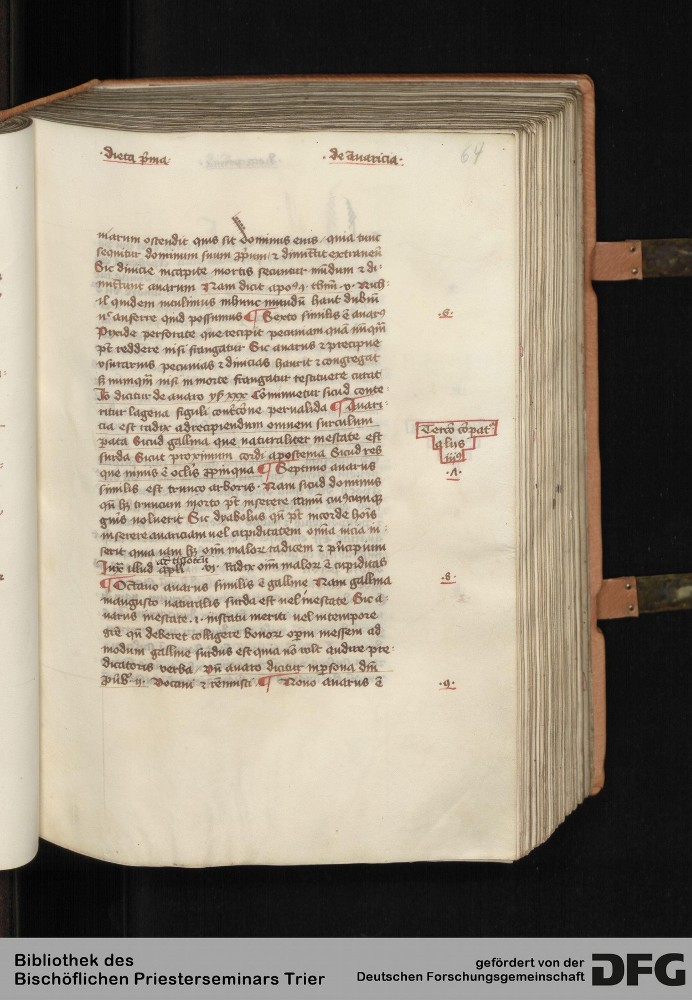 dieta p̄ma
de Auaricia
64
niarum ostendit quis sit dominus eius quia tunc
sequitur dominum suum ꝓpriū ⁊ dimittit extraneū
Sic diuicie in capite mortis secuntur mūdum ⁊ di-
mittunt auarum Nam dicit apo9 .j. thim̄ .v. Nich-
il quidem intulimus in hunc mūdū haut dubiū
qd possumus ¶ Sexto similis ē auarꝰ
Pixide perforate que recipit pecuniam quā nūq̄m
pt̄ reddere nisi frangatur Sic auarus ⁊ precipue
vsurarius pecunias ⁊ diuicias haurit ⁊ congregat
ꝫ numq̄m nisi in morte frangatur restituere curat
Io dicitur de auaro ysͣ xxx Comminuetur sicud conte-
ritur lagena figuli contc̄one peruалida ¶ Auari-
cia est radix ad recipiendum omnem surculum
pͨata Sicud gallina que naturaliter in estate est
surda Sicut proximum cordi apostema Sicud res
que nimis ē oclis ꝓpinqua ¶ Septimo auarus
similis est trunco arboris Nam sicud dominus
qn̄ hꝫ truncum morto pt̄ inserere ramū cuiꝰcumqꝫ
gn̄is voluerit Sic dyabolus qn̄ pt̄ in corde hoīs
inserere auariciam vel cupiditatem om̄ia vicia in-
serit quia iam hꝫ om̄ malor̄ radicem ⁊ p̄ncipium
Iuxͣ illud apli .vj. Radix om̄ malor̄ ē cupiditas
¶ Octauo auarus similis ē galline Nam gallina
in augusto naturalis surda est vel in estate Sic a-
uarus in estate .i. in statu meriti vel in tempore
grē qn̄ deberet colligere bonor̄ opm̄ messem ad
modum galline surdus est quia nō vlt̄ audire pre-
dicatoris verba Vn̄ auaro dicitur in psona dm̄
ꝓuͥbͥ .ij. Vocaui ⁊ rēnuisti ¶ Nono auarus ē
.6.
Tercō cōpatͥ
.7.
.8.
.9.
Bibliothek des
Bischöflichen Priesterseminars Trier
gefördert von der
Deutschen Forschungsgemeinschaft
DFG